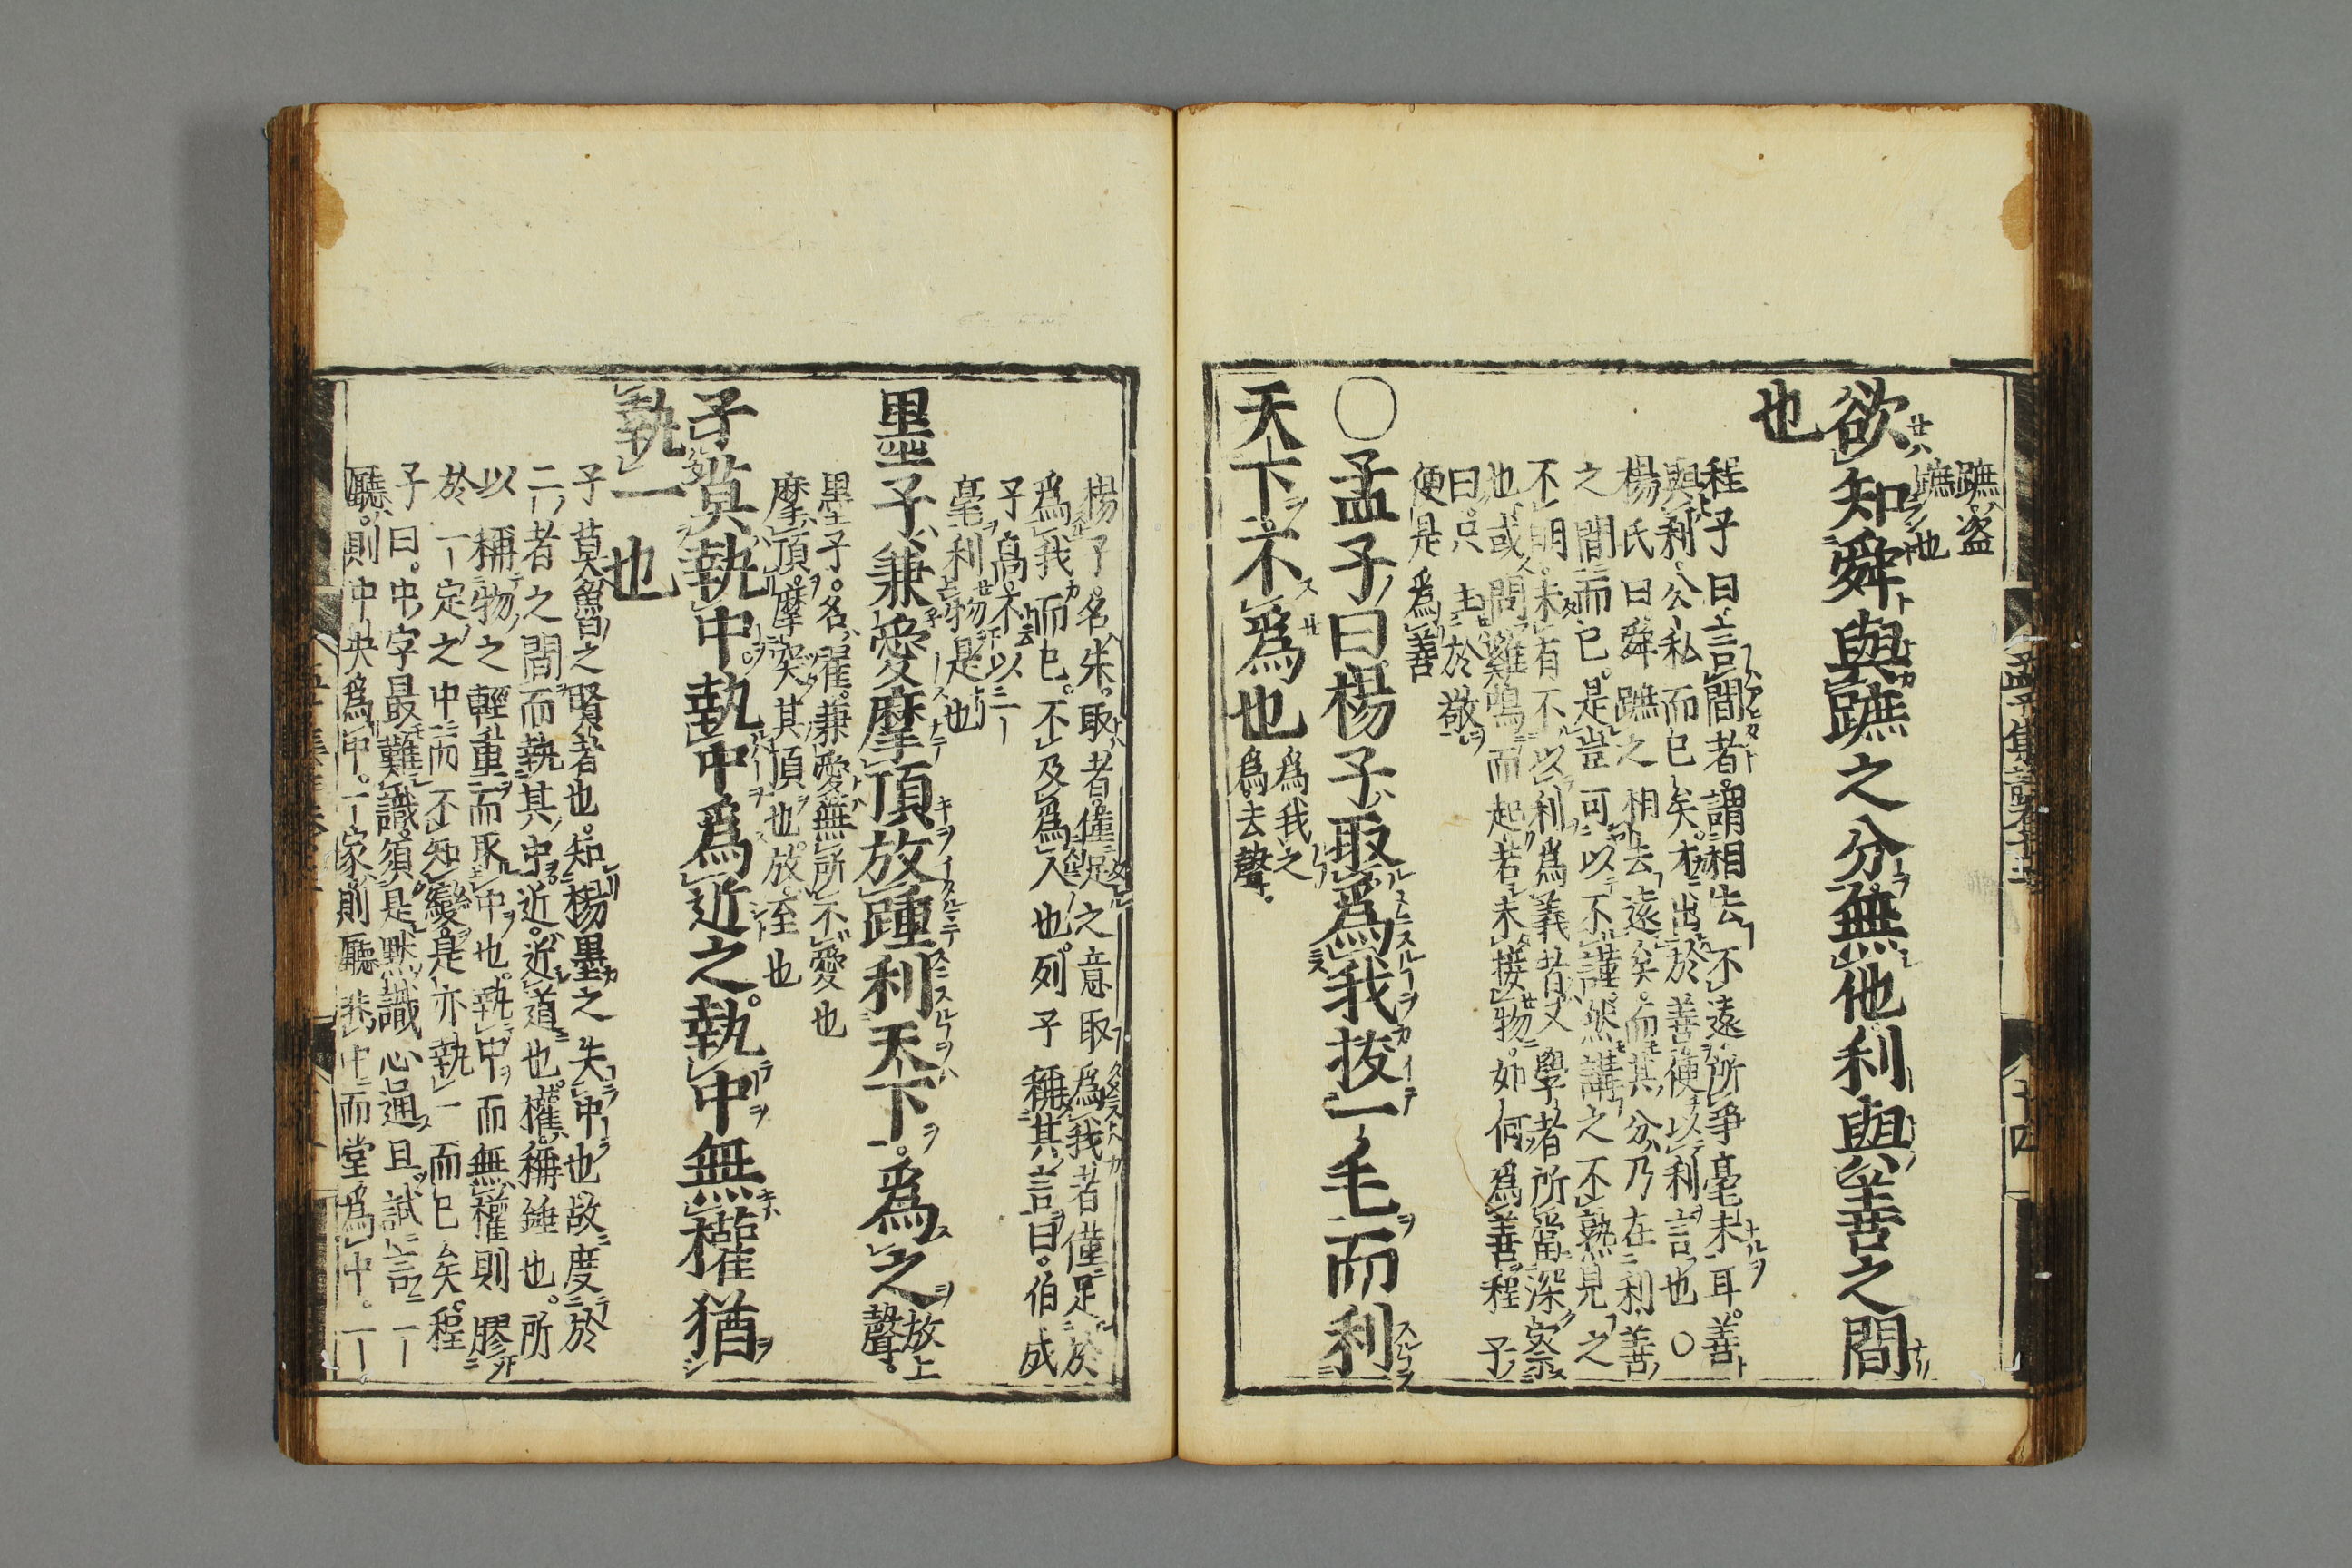 蹠盗
蹠也
欲知舜與蹠之分無他利與善之間
也
程子曰言間者謂相去不遠所爭毫末耳善
與利公私而已矣才出於善便以利言也〇
楊氏曰舜蹠之相去遠矣而其分乃在利善
之間而已是豈可以不謹然講之不熟見之
不明未有不以利爲義者又學者所當深察
也或問雞鳴而起若未接物如何爲善程子
曰只主於敬
便是爲善
〇孟子曰楊子取爲我拔一毛而利
天下不爲也爲我之
爲去聲
楊子名朱取者僅足之意取爲我者僅足於
爲我而已不及爲人也列子稱其言曰伯成
子高不以一
毫利物是也
墨子兼愛摩頂放踵利天下爲之放上
聲
墨子名翟兼愛無所不愛也
摩頂摩突其頂也放至也
子莫執中執中爲近之執中無權猶
執一也
子莫魯之賢者也知楊墨之失中也故度於
二者之間而執其中近近道也權稱錘也所
以稱物之輕重而取中也執中而無權則膠
於一定之中而不知變是亦執一而已矣程
子曰中字最難識須是默識心通且試言一
廳則中央爲中一家則廳非中而堂爲中一
孟子集註卷十三
十四